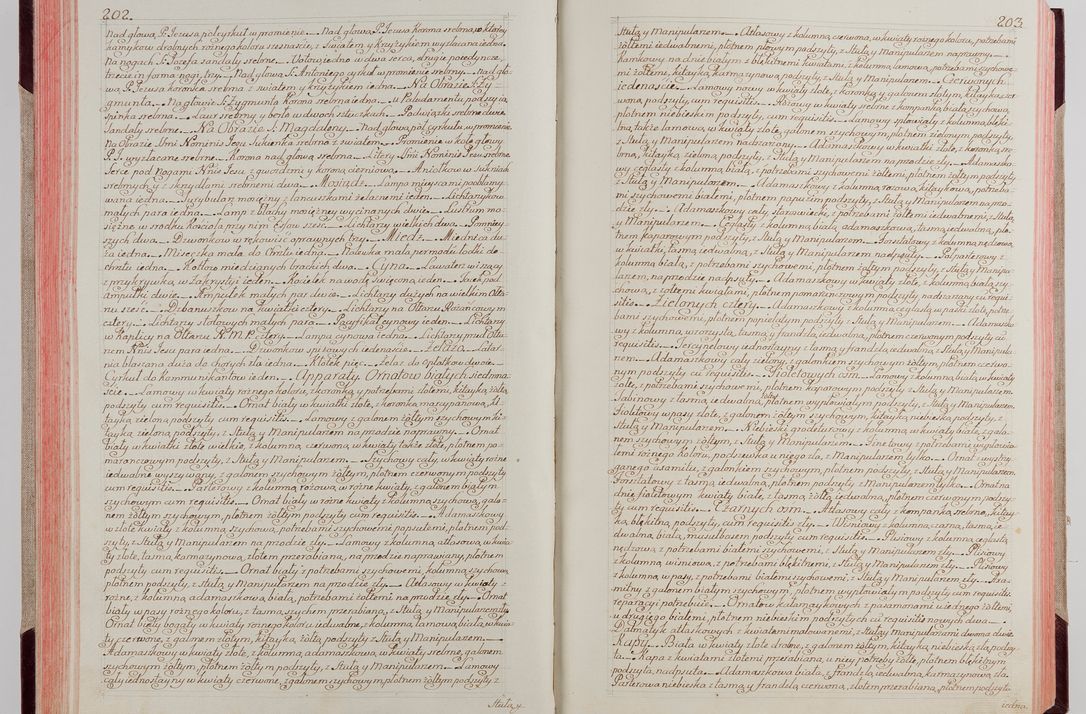 202.
Nad głową P. Jezusa pół cyrkuł w promienie. Nad głową P. Jezusa Korona srebrna, w którey
kamyków drobnych roznego koloru szesnascie, z Swiatem y krzyżykiem wyzłacana iedna.
Na nogach S. Jozefa sandały srebne. Votow iedno w dwa serca, drugie poiedyncze,
trzecie in forma nogi, trzy. Nad głową S. Antoniego cyrkuł w promienie srebrny. Nad gło-
wą P. Jezusa koronka srebna z swiatem y krzyżykiem iedna. Na Obrazie S. Zy-
gmunta. Na głowie S. Zygmunta Korona srebna iedna. U Paludamentu pod szyią
spinka srebna. Laur srebrny y berło w dwoch sztuczkach. Podwiązki srebne dwie.
Sandały srebne. Na Obrazie S. Magdaleny. Nad głową poł cyrkułu w promienie.
Na Obrazie Smi Nominis Jesu sukienka srebna z swiatem. Promienie w koło głowy
P. J. wyzłacane srebne. Korona nad głową srebrna. Litery Smi Nominis Jesu srebne.
Serce pod Nogami Nnis Jesu z gwozdzmi y koroną cierniową. Aniołkow w sukniach
srebrnych y z skrzydłami srebnemi dwa. Mosiądz. Lampa mieyscami posrebrzy-
wana iedna. Turybularz mosiężny z łancuszkami żelaznemi ieden. Lichtarzykow
małych para iedna. Lamp z blachy mosiężney wycinanych dwie. Lustrum mo-
siężne w srodku koscioła przy nim Esow szesc. Lichtarzy wielkich dwa. Pomniey-
szych dwa. Dzwonkow w rękowiesc oprawnych trzy. Miedz. Miednica du-
ża iedna. Miseczka mała do chrztu iedna. Nalewka mała per modum łodki do
chrztu iedna. Kotłow miedzianych brackich dwa. Cyna. Lawaterz wiszący
z przykrywką w Zakrystyi ieden. Kociełek na wodę Swięconą ieden. Tacek pod
ampułki dwie. Ampułek małych par dwie. Lichtarzy dużych na wielkim Ołta-
rzu szesc. Dzbanuszkow na kwiatki cztery. Lichtarzy na Ołtarzu Rożańcowym
cztery. Lichtarzy stołowych małych para. Pacyfikał cynowy ieden. Lichtarzy
w Kaplicy na Ołtarzu N. M. P. cztery. Lampa cynowa iedna. Lichtarzy przed Ołta-
rzem Nnis Jesu para iedna. Dzwonkow spiżowych iedenascie. Żelazo. Latar-
nia blaszana duża do chorych dla iedna. Kłotek pięc. Zelez do Opłatkow dwoie.
Cyrkuł do kommunikantow ieden. Apparaty. Ornatow białych siedmna-
scie. Lamowy w kwiaty roznego koloru, z koronką y potrzebami złotemi, kitayką żołtą
podszyty cum requisitis. Ornat biały w kwiatki złote, z koronką na wypasową, ki-
tayką zieloną podszyty cum requisitis. Lamowy z galonem żołtym szychowym ki-
tayką zieloną podszyty, z Stułą y Manipularzem na przodzie naprawny. Ornat
biały w kwiatki złote wielkie, z kolumną czerwoną w kwiaty także złote, płotnem po-
maranczowym podszyty, z Stułą y Manipularzem. Szychowy cały, w kwiaty rozne
iedwabne wyszywany, z galonem szychowym żołtym, płotnem czerwonym podszyty
cum requisitis. Parterowy z kolumną rożową, w rozne kwiaty, z galonem białym
szychowym cum requisitis. Ornat biały w rozne kwiaty z kolumną szychową, galo-
nem żołtym szychowym, płotnem żołtym podszyty cum requisitis. Adamaszkowy
w złote kwiaty z kolumną szychową, potrzebami szychowemi popsutemi, płotnem pod-
szyty, z Stułą y Manipularzem na przodzie zły. Lamowy z kolumną atłasową, w kwia-
ty złote, tasmą karmazynową, złotem przerabianą, na przodzie naprawiany, płotnem
podszyty cum requisitis. Ornat biały z potrzebami szychowemi, kolumną szychową
płotnem podszyty, z Stułą y Manipularzem na przodzie zły. Atłasowy w kwiaty
rożne, z kolumną adamaszkową białą, potrzebami żołtemi na przodzie zły. Ornat
biały w pasy roznego koloru, z tasmą szychem przerabianą, z Stułą y Manipularzem zły.
Ornat biały bogaty w kwiaty roznego koloru iedwabne, z kolumną lamową białą, w kwia-
ty czerwone, z galonem żołtym, kitayką żołtą podszyty, z Stułą y Manipularzem.
Adamaszkowy w kwiaty złote, z kolumną adamaszkową, w kwiaty srebne, galonem
szychowym żołtym, płotnem żołtym podszyty, z Stułą y Manipularzem. Lamowy
cały iednostayny w kwiaty czerwone, z galonem szychowym żołtym, płotnem podszyty z
Stułą y
203.
Stułą y Manipularzem. Atłasowy z kolumną czerwoną, w kwiaty roznego koloru, potrzebami
żołtemi iedwabnemi, płotnem płowym podszyty, z Stułą y Manipularzem naprawny.
Kamkowy na dnie białym z błękitnemi kwiatami, z kolumną lamową, potrzebami szychowe-
mi żołtemi, kitayką karmazynową podszyty, z Stułą y Manipularzem. Czerwonych
iedenascie. Lamowy nowy w kwiaty złote, z koronką y galonem złotym, kitayką czer-
woną podszyty, cum requisitis. Rożowy w kwiaty srebne z kompanką białą szychową
płotnem niebieskim podszyty, cum requisitis. Lamowy spłowiały z kolumną błęki-
tną, także lamową, w kwiaty złote, galonem szychowym, płotnem zielonym podszyty,
z Stułą y Manipularzem nadszarzany. Adamaszkowy w kwiatki złote, z koronką sre-
brną, kitayką zieloną podszyty, z Stułą y Manipularzem na przodzie zły. Adamaszko-
wy ceglasty z kolumną białą, z potrzebami szychowemi żołtemi, płotnem żołtym podszyty
z Stułą y Manipularzem. Adamaszkowy z kolumną rożową, kitaykową, potrzeba-
mi szychowemi białemi, płotnem papuzim podszyty, z Stułą y Manipularzem na przo-
dzie zły. Adamaszkowy cały, staroswiecki, z potrzebami żołtemi iedwabnemi, z Stułą
y Manipularzem. Ceglasty z kolumną białą, adamaszkową, tasmą iedwabną, płó-
tnem kaparowym podszyty, z Stułą y Manipularzem. Forsztatowy z kolumną nędzową,
w kwiatki, tasmą iedwabną, z Stułą y Manipularzem nadpsuty. Połparterowy z
kolumną białą, z potrzebami szychowemi, płotnem żołtym podszyty, z Stułą y Manipu-
larzem, na przodzie nadpsuty. Adamaszkowy w kwiaty złote, z kolumną białą szy-
chową, z żołtemi kwiatami, płotnem pomaranczowym podszyty, nadszarzany cu requi-
sitis. Zielonych cztery. Adamaszkowy z kolumną ceglastą w paski złote, potrze-
bami szychowemi, płotnem popielatym podszyty z Stułą y Manipularzem. Adamaszko-
wy z kolumną wzorzystą, tasmą y frandzlą iedwabną, płotnem czerwonym podszyty cu
requisitis. Tercynelowy iednostayny z tasmą y frandzlą iedwabną z Stułą y Manipula-
rzem. Adamaszkowy cały zielony, z galonkiem szychowym żołtym, płotnem czerwo-
nym podszyty cu requisitis. Fioletowych osm. Lamowy z kolumną białą, w kwiaty
żołte, z potrzebami szychowemi, płotnem kaparowym podszyty, z Stułą y Manipularzem.
Sabinowy z tasmą iedwabną żołtą, płotnem wypłowiałym podszyty, z Stułą y Manipularzem.
Fioletowy w pasy złote, z galonem żołtym szychowym, kitayką niebieską podszyty, z
Stułą y Manipularzem. Niebieski grodeturowy, z kolumną w kwiaty białe, galo-
nem szychowym żołtym, z Stułą y Manipularzem. Pinetowy, z potrzebami wypłowia-
łemi roznego koloru, podszewka u niego zła, z Manipularzem tylko. Ornat z wystrzy-
ganego axamitu, z galonkiem szychowym, płotnem podszyty, z Stułą y Manipularzem.
Forsztatowy z tasmą iedwabną, płotnem podszyty z Manipularzem tylko. Ornat na
dnie fioletowym kwiaty białe, z tasmą żołtą iedwabną, płotnem czerwonym podszy-
ty cum requisitis. Czarnych osm. Atłasowy cały z kompanką srebrne, kitay-
ką błękitną podszyty, cum requisitis zły. Altynowy z kolumną czarną, tasmą ie-
dwabną białą, musulbasem podszyty cum requisitis. Plisowy z kolumną ceglastą
nędzową z potrzebami białemi szychowemi, z Stułą y Manipularzem zły. Plisowy
z kolumną wisniową, z potrzebami błękitnemi, z Stułą y Manipularzem zły. Plisowy
z kolumną w pasy, z potrzebami białemi szychowemi, z Stułą y Manipularzem zły. Axa-
mitny z galonem szychowym białym, płotnem wypłowiałym podszyty cum requisitis
reparacyi potrzebuie. Ornatow kałamaykowych z pasamonami u iednego żołtemi,
u drugiego białemi, płotnem niebieskim podszytych cu requisitis nowych dwa.
Dalmatyk atłaskowych z kwiatami malowanemi, z Stułą y Manipularzami dwoma dwie.
Kapy. Biała w kwiaty złote drobne, z galonem szychowym żołtym, kitayką niebieską zła podszy-
ta. Kapa z kwiatami złotemi przerabianą, u niey potrzeby żołte, płotnem błękitnym
podszyta, nadpsuta. Adamaszkowa biała z frandzlą iedwabną karmazynową zła.
Parterowa niebieska z tasmą y frandzlą czerwoną, złotem przerabianą, płotnem podszyta
iedna.